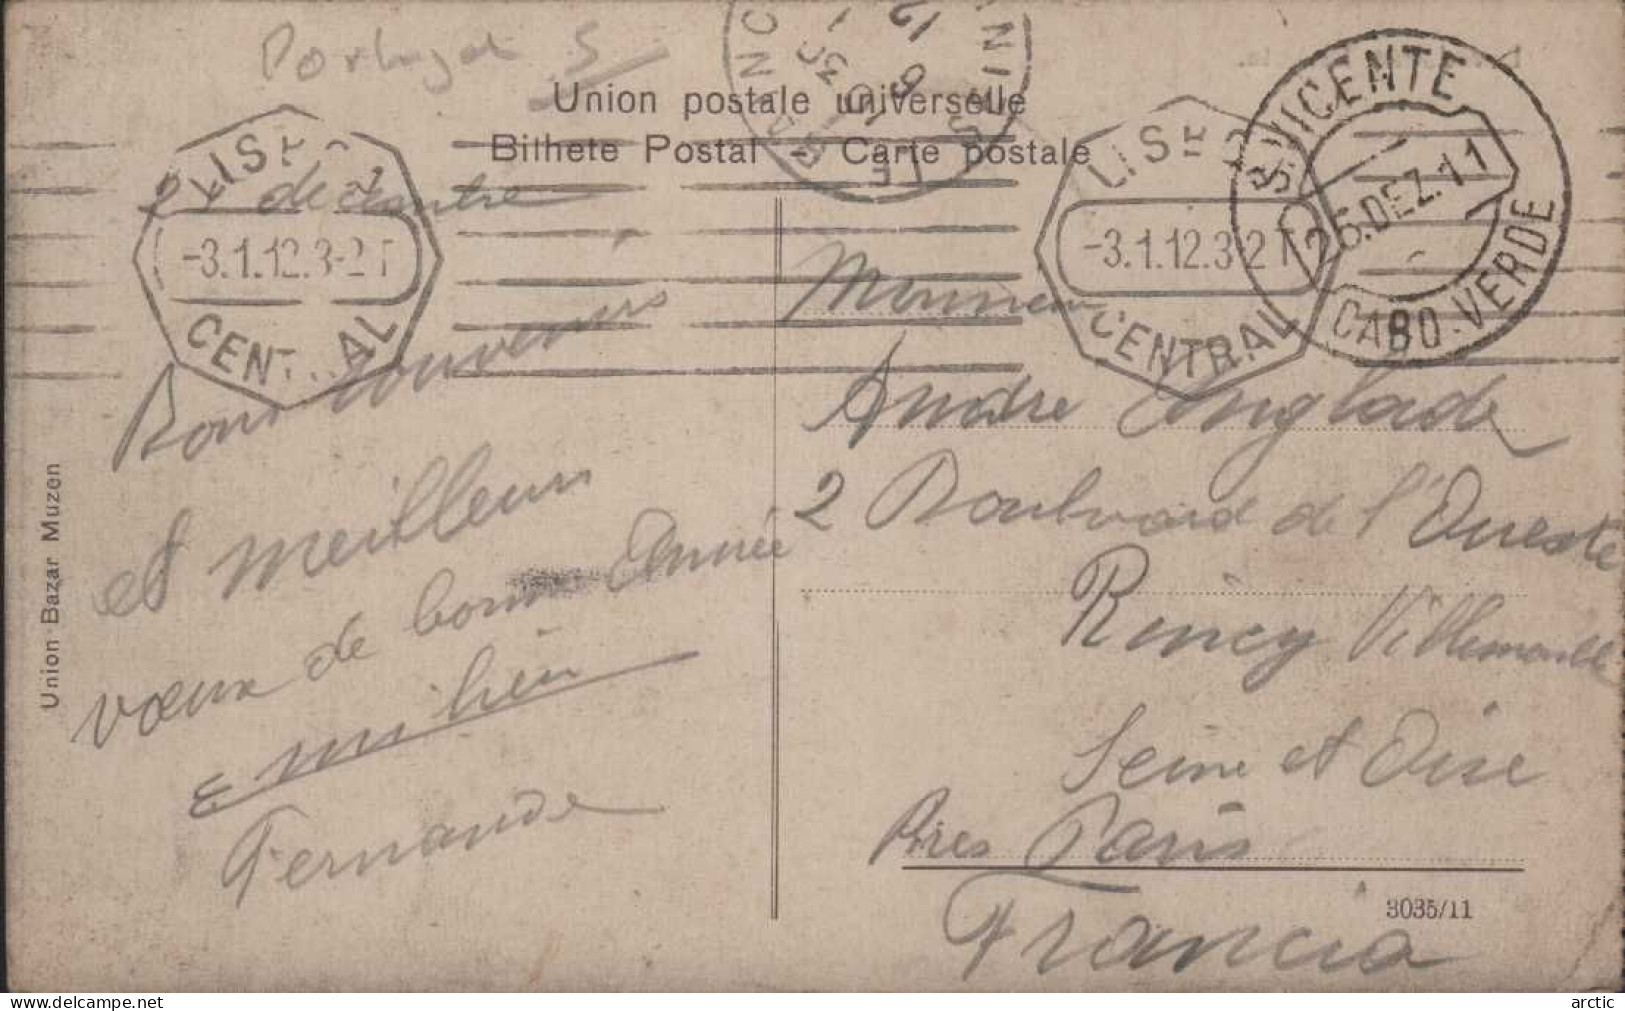 Portugal 5
Union postale universelle
Bilhete Postal - Carte postale
LISB
-3.1.12.3-2T
CENTRAL
LISB
-3.1.12.3-2T
CENTRAL
S.VICENTE
26.DEZ.11
CABO-VERDE
decembre
Bons souvenirs
et meilleurs
vœux de bonne Année
Emilien
Fernande
Monsieur
Andre Anglade
2 Boulvard de l'Oueste
Rincy Villemomble
Seine et Oise
Pires Paris
Francia
3035/11
Union Bazar Muzon
arctic